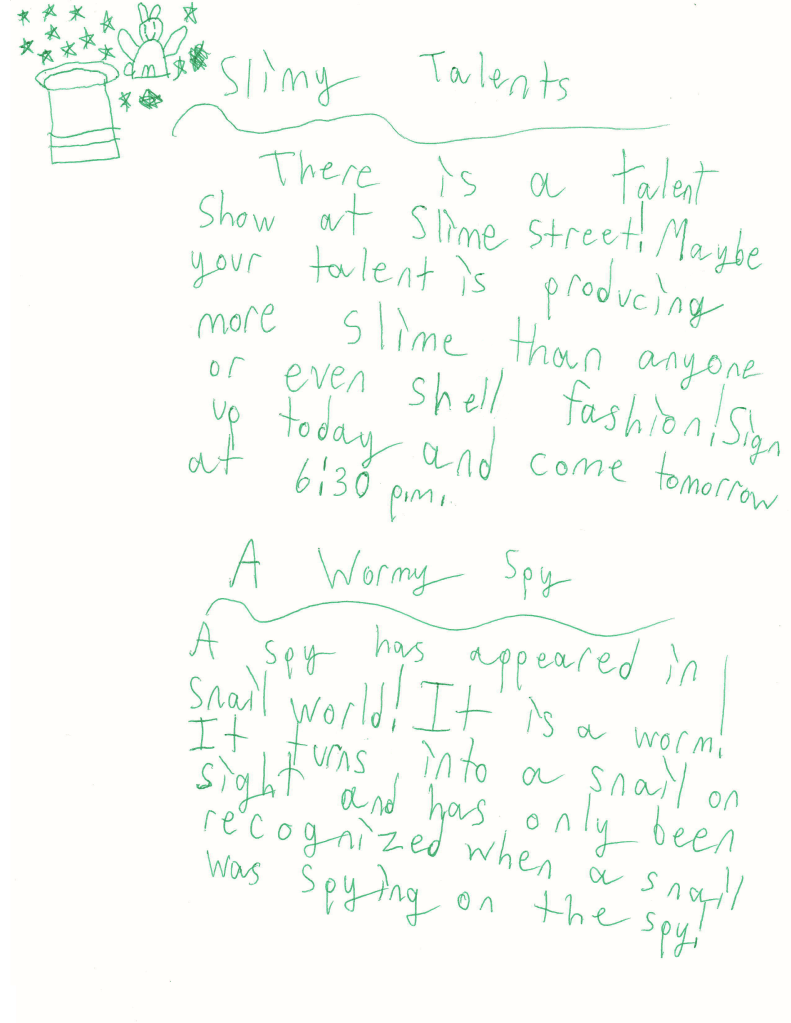 Slimy Talents
There is a talent
show at Slime street! Maybe
your talent is producing
more slime than anyone
or even shell fashion! Sign
up today and come tomorrow
at 6:30 p.m.
A Wormy Spy
A spy has appeared in
snail world! It is a worm!
It turns into a snail on
sight and has only been
recognized when a snail
was spying on the spy!